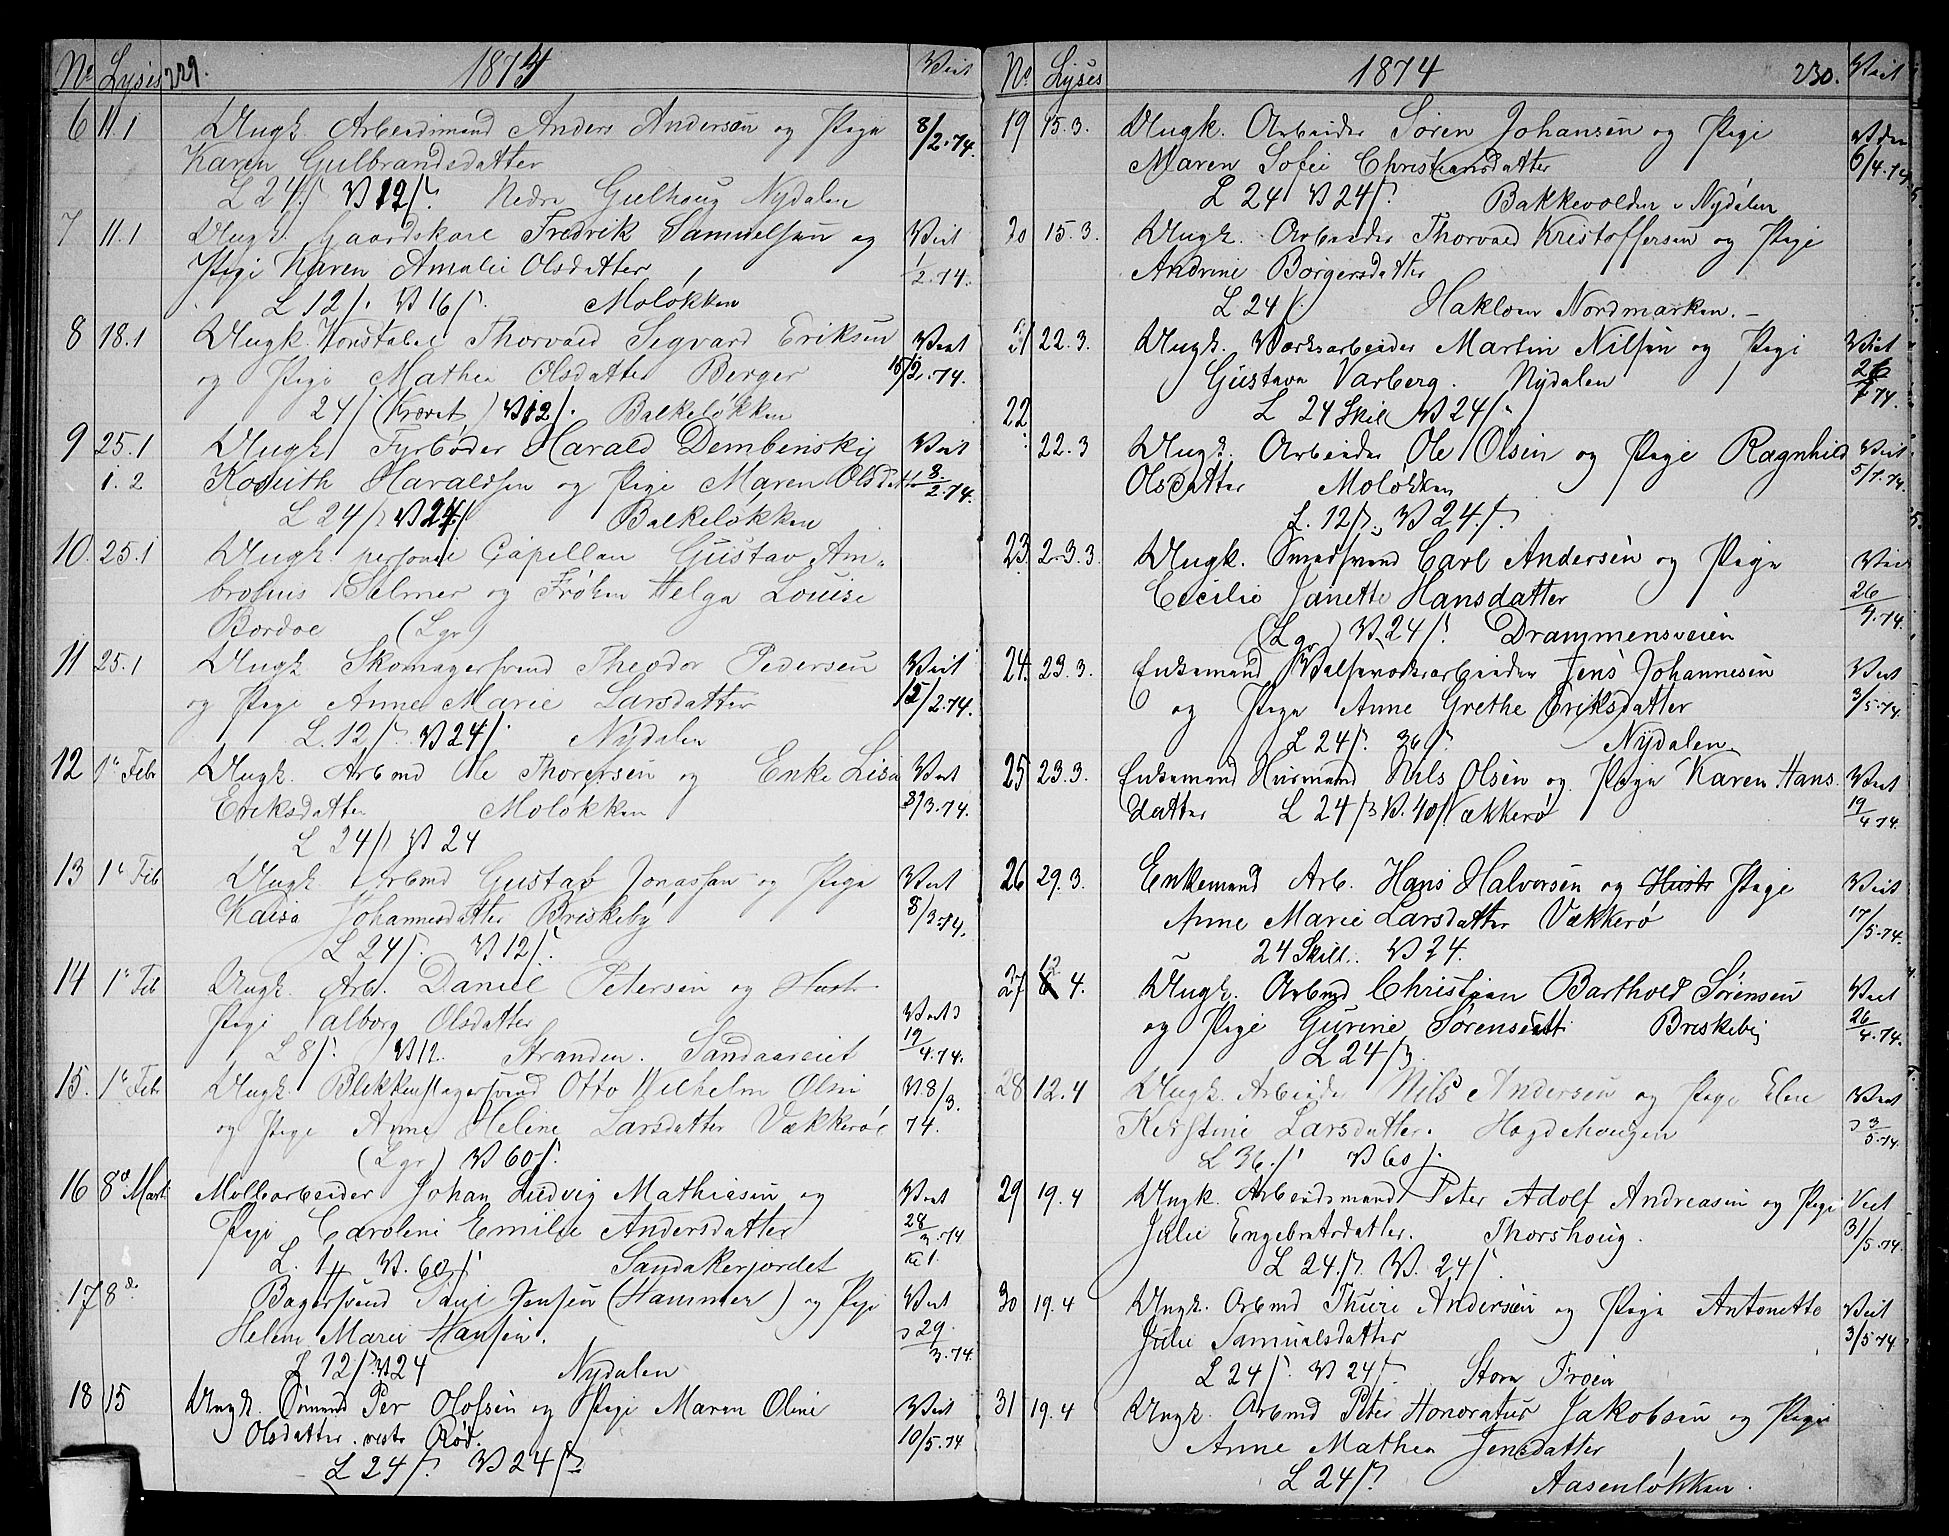 No Lysis 229. 1874 Viet
6 11.1 Ungk. Arbeidsmand Anders Andersen og Pige 8/2.74.
Karen Gulbrandsdatter
L 24 /. V 12 /. Nedre Gulhaug Nydalen
7 11.1 Ungk. Gaardskarl Fredrik Samuelsen og Viet 1/2.74.
Pige Karen Amalie Olsdatter
L 12 /. V 16 /. Moløkken
8 18.1 Ungk. Konstabel Thorvald Sigvard Eriksen Viet
og Pige Mathea Olsdatter Berger 15/2.74.
24 /. (Krævet) V 12 /. Balkeløkken
9 25.1 Ungk. Fyrbøder Harald Dembensky Viet
1.2 Kosuth Haraldsen og Pige Maren Olsdatter 8/2.74.
L 24 / V 24 / Balkeløkken
10. 25.1 Ungk. personel Capellan Gustav Am-
brosius Selmer og Frøken Helga Louise
Bordoe (Lgr)
11 25.1 Ungk Skomagersvend Theodor Pedersen Viet
og Pige Anne Marie Larsdatter 15/2.74.
L. 12 /. V 24 /. Nydalen
12 1e Febr Ungk. Arbmd Ole Thoresen og Enke Lisa Viet
Eriksdatter Moløkken 8/3.74.
L 24 / V 24
13 1e Feb Ungk Arbmd Gustaf Jonassen og Pige Viet
Kaisa Johannesdatter Briskeby 8/3.74.
L 24 /. V 12 /.
14 1e Feb Ungk. Arb. Daniel Petersen og Hustr
Pige Valborg Olsdatter Viet
L 8 /. V 12. Stranden. Sandaaseiet 12/4.74.
15. 1e Febr Ungk. Blikkenslagersvend Otto Wilhelm Olsen V. 8/3.
og Pige Anne Helene Larsdatter Vækkerø 74.
(Lgr) V 60 /.
16 8de Marts Mølearbeider Johan Ludvig Mathiesen og Viet
Pige Caroline Emilie Andersdatter 28/3.74
L. 14 V. 60 / Sandakerjordet Kl 1.
17 8de Bagersvend Paul Jensen (Hammer) og Pige Viet
Helene Marie Hansen. 29/3.74
L 12 /. V 24 Nydalen
18 15 Ungk. Sømand Per Olofsen og Pige Maren Oline Viet
Olsdatter vestr Rød. 10/5.74
L 24 /. V 24 /.
No Lyses 1874 230. Viet
19 15.3. Ungk. Arbeider Søren Johansen og Pige Viet
Maren Sofie Christiansdatter 6/4.74.
L 24 V 24 /. Bakkevolden i Nydalen
20 15.3. Ungk. Arbeider Thorvald Kristoffersen og Pige
Andrine Borgersdatter
L 24 /. Hakloen Nordmarken.
21 22.3. Ungk. Værksarbeider Martin Nilsen og Pige Viet
Gustava Varberg. Nydalen 26/4 74.
22 L 24 Skil V 24 /.
22.3 Ungk. Arbeider Ole Olsen og Pige Ragnhild Viet
Olsdatter Moløkken 5/7.74.
L. 12 /. V 24. /.
23. 23.3 Ungk. Smedsvend Carl Andersen og Pige Viet
Cecilie Janette Hansdatter 26/4.74.
(Lgr) V 24 /. Drammensveien
24. 23.3. Enkemand Valseværksarbeider Jens Johannesen Viet
og Pige Anne Grethe Eriksdatter 3/5.74.
L 24 /. 36 /. Nydalen
25 23.3. Enkemand Husmand Nils Olsen og Pige Karen Hans- Viet
datter L 24 / V. 40 /. Vækkerø 19/4 74.
26 29.3. Enkemand Arb. Hans Halvorsen og Hustr Pige Viet
Anne Marie Larsdatter Vækkerø 17/5.74.
24 Skill. V 24.
27 12. 4. Ungk. Arbmd Christian Barthold Sørensen Viet
og Pige Gurine Sørensdatt Briskeby 26/4.74.
L 24 /.
28 12.4 Ungk. Arbeider Nils Andersen og Pige Elen Viet
Kirstine Larsdatter. Høgdehougen 3/5.74.
L 36. / V 60 /.
29 19.4 Ungk. Arbeidsmand Peter Adolf Andreasen og Pige Viet
Julie Engebretsdatter. Thorshoug. 31/5.74.
L 24 /. V. 24 /.
30 19.4 Ungk. Arbmd Thure Andersen og Pige Antonette Viet
Julie Samualsdatter 3/5.74
L 24 /. V 24 /. Store Frøen
31 19.4 Ungk. Arbmd Peter Honoratus Jakobsen og Pige
Anne Mathea Jensdatter
L 24 /. Aasenløkken.